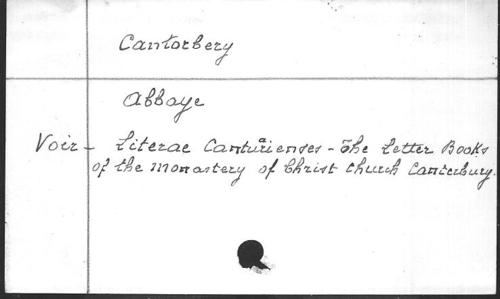 Cantorbery
Abbaye
Voir - Literae Canturienses - The Letter Books
of the Monastery of Christ Church Canterbury.